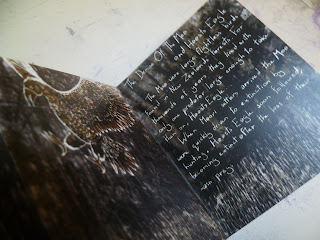 The Demise Of The Moa
and Haast's Eagle
The Moa were large flightless birds
that in New Zealand forests For
thousands of years they had with
only one predator large enough to take
Haast's Eagle
them. When Maori arrived the Moa
were quickly driven to extinction by
hunting. Haast's Eagle soon followed,
becoming extinct after the loss of their
main prey.